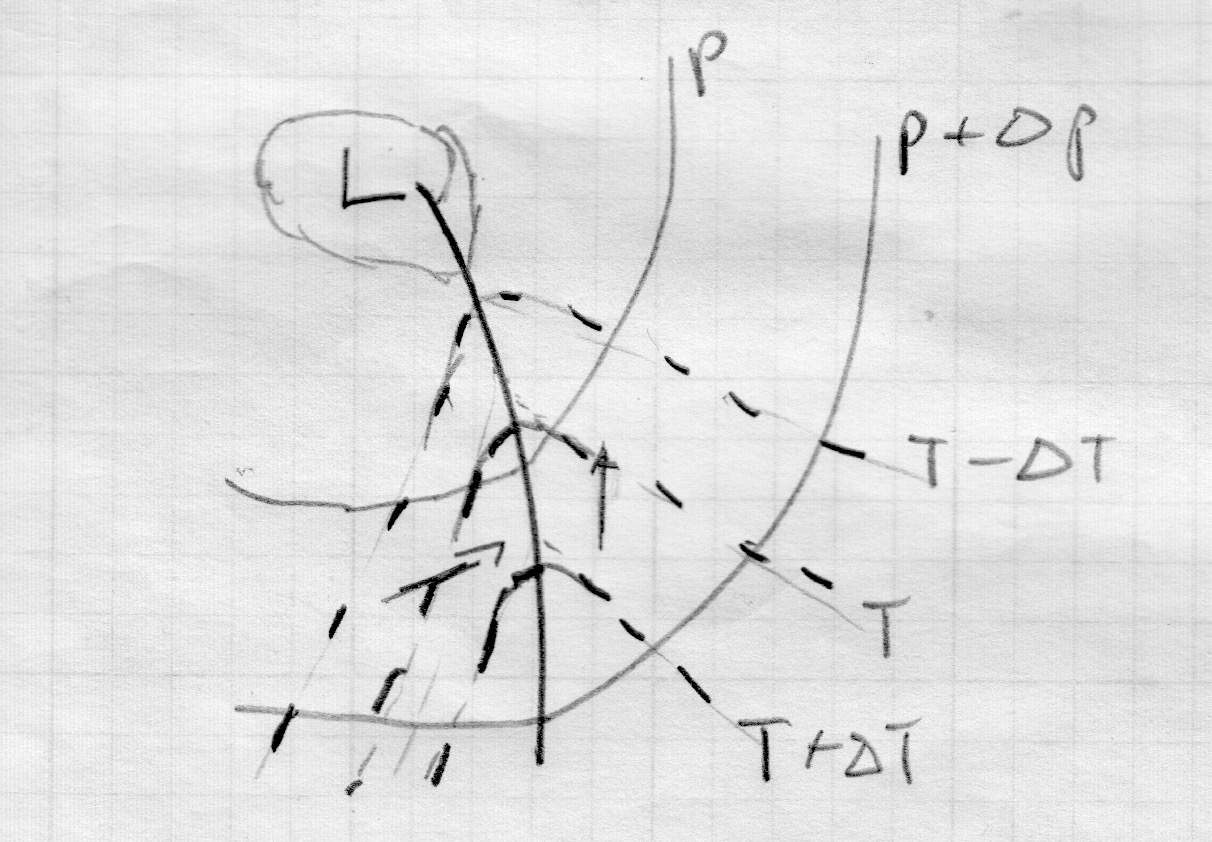 P
P + Δp
L
T - ΔT
T
T + ΔT